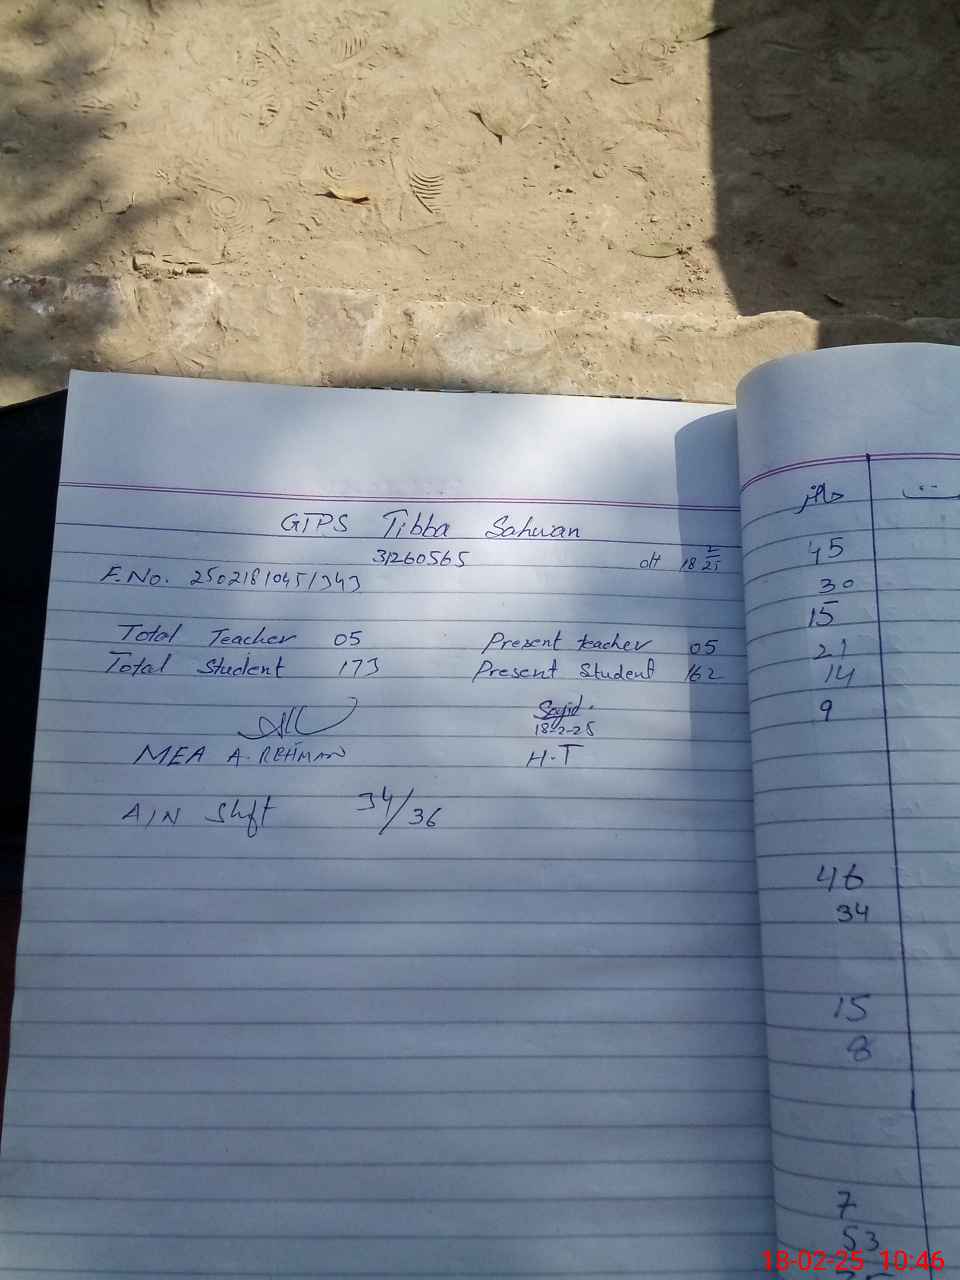 GTPS Tibba Sahwan
31260565 dt 18 2/25
F.No. 250218/045/343
Total Teacher 05 Present teacher 05
Total Student 173 Present Student 162
Sajid
18-2-25
MEA A. REHMAN H.T
A/N Shft 34/36
حاضر
45
30
15
21
14
9
46
34
15
8
7
53
18-02-25 10:46